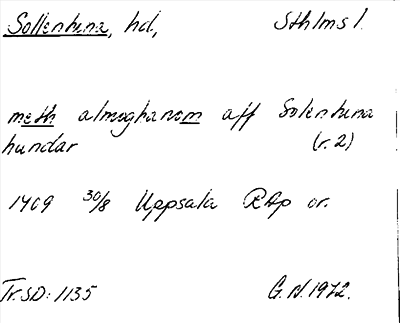 Sollentuna, hd, Sthlms l.
meth almoghanom aff Solentuna
hundar (r. 2)
1409 30/8 Uppsala RAp or.
Tr. SD: 1135 G.N. 1972.